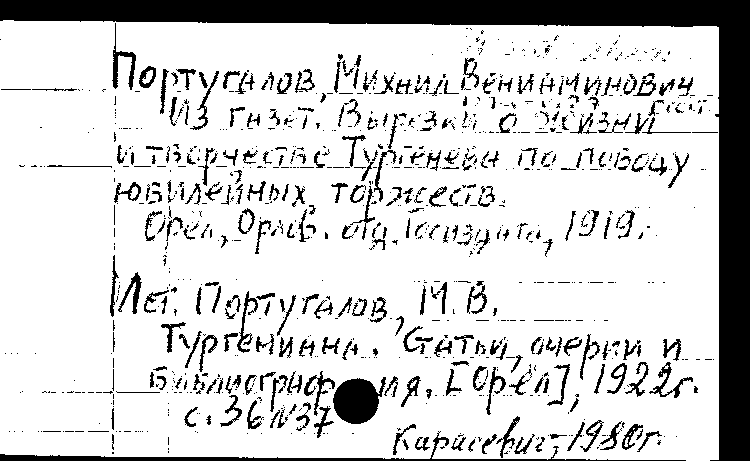 Португалов, Михаил Вениаминович
Из газет. Вырезки о жизни
и творчестве Тургенева по поводу
юбилейных торжеств.
Орёл, Орлов. отд. Госиздата, 1919.
Ист. Португалов, М. В.
Тургениана. Статьи, очерки и
библиография. [Орёл], 1922г.
с. 36 №37
Карасевич, 1980г.